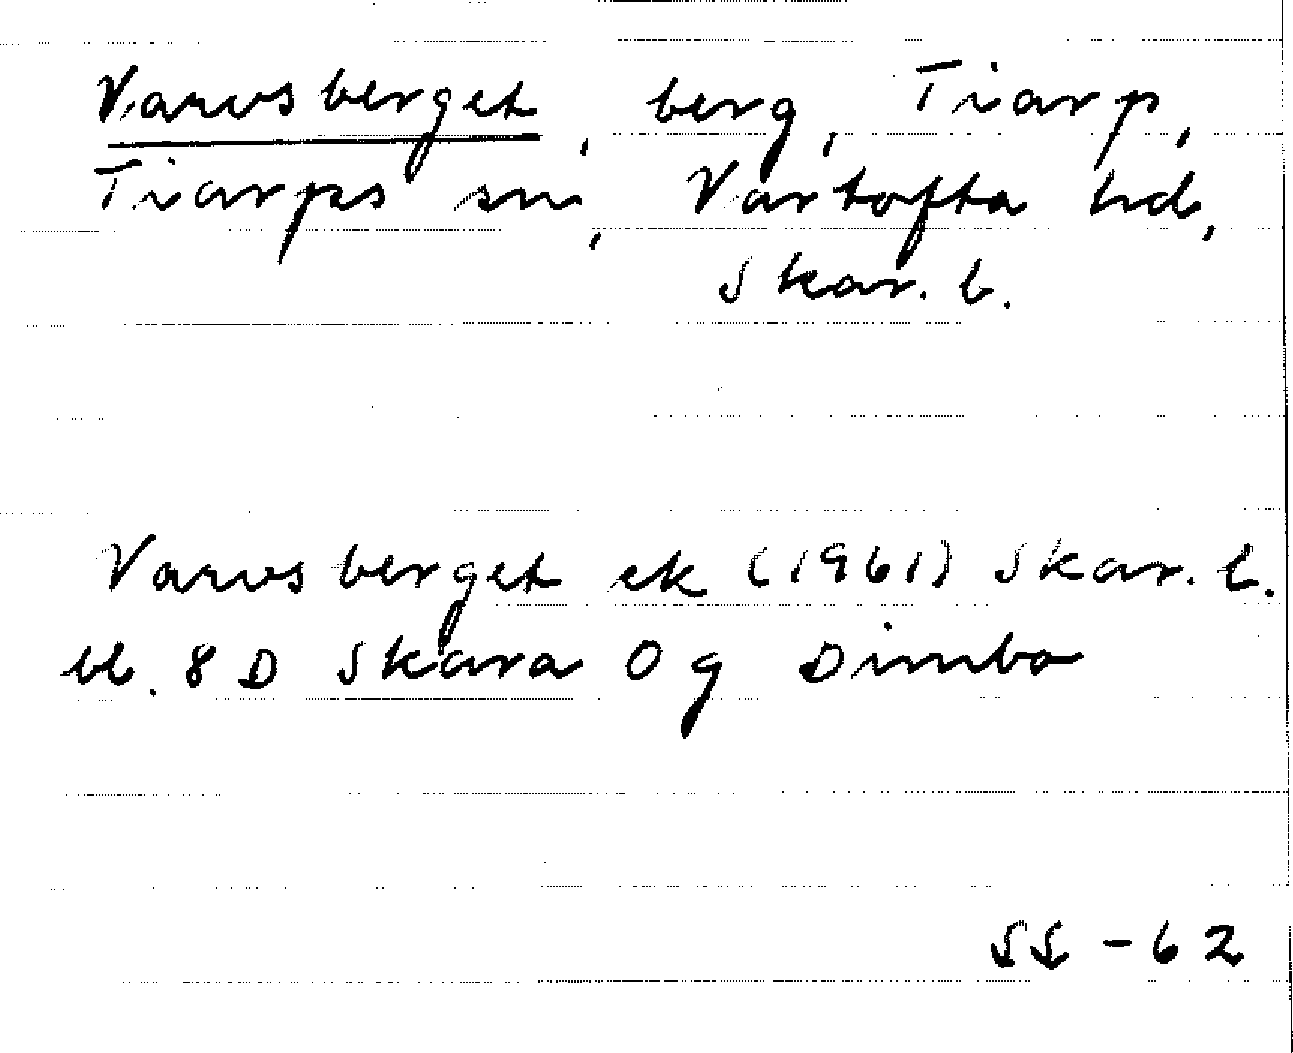 Varvsberget, berg, Tiarp,
Tiarps sn, Vartofta hd,
Skar. l.
Varvsberget ek (1961) Skar. l.
bl. 8 D Skara 0 g Dimbo
SS - 62